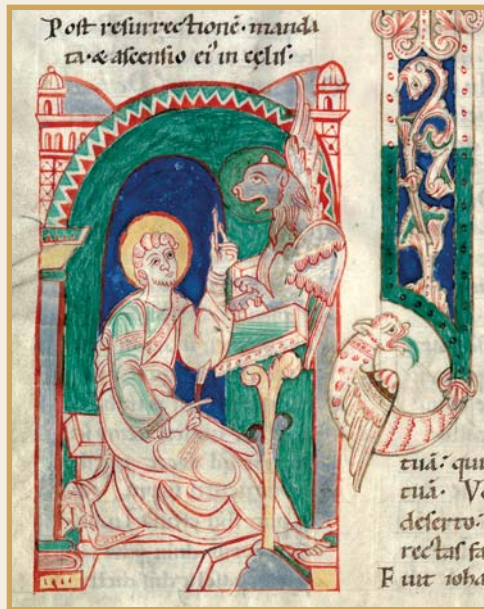 Post resurrectionē· manda
ta· & ascensio ei' in cęlis·
tuā: qui
tuā·
deserto:
rectas fa
Fuit ioha